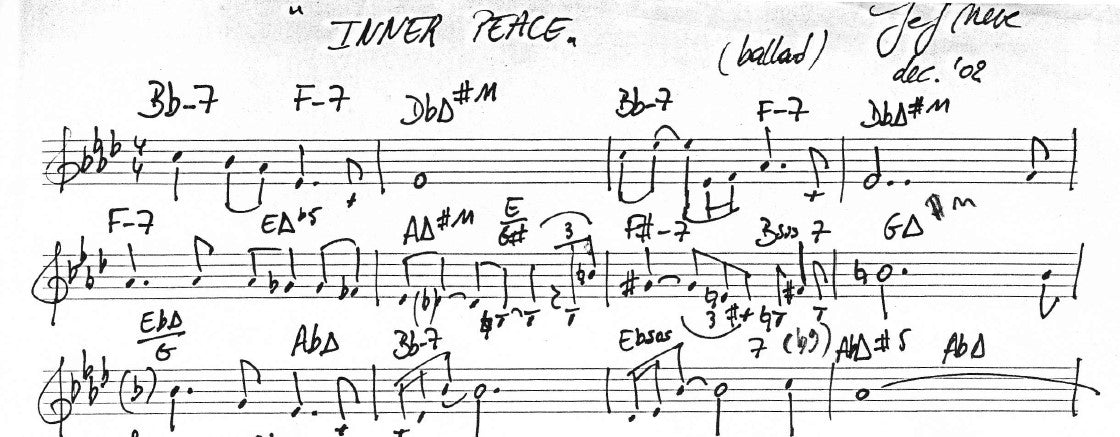 " INNER PEACE.
(ballad)
Jef Neve
dec. '02
Bb-7 F-7 DbΔ#11 Bb-7 F-7 DbΔ#11
4
4
F-7 EΔb5 AΔ#11 E/G# 3 F#-7 Bsus 7 GΔ#11
3
EbΔ/G AbΔ Bb-7 Ebsus 7 (b9) AbΔ#5 AbΔ